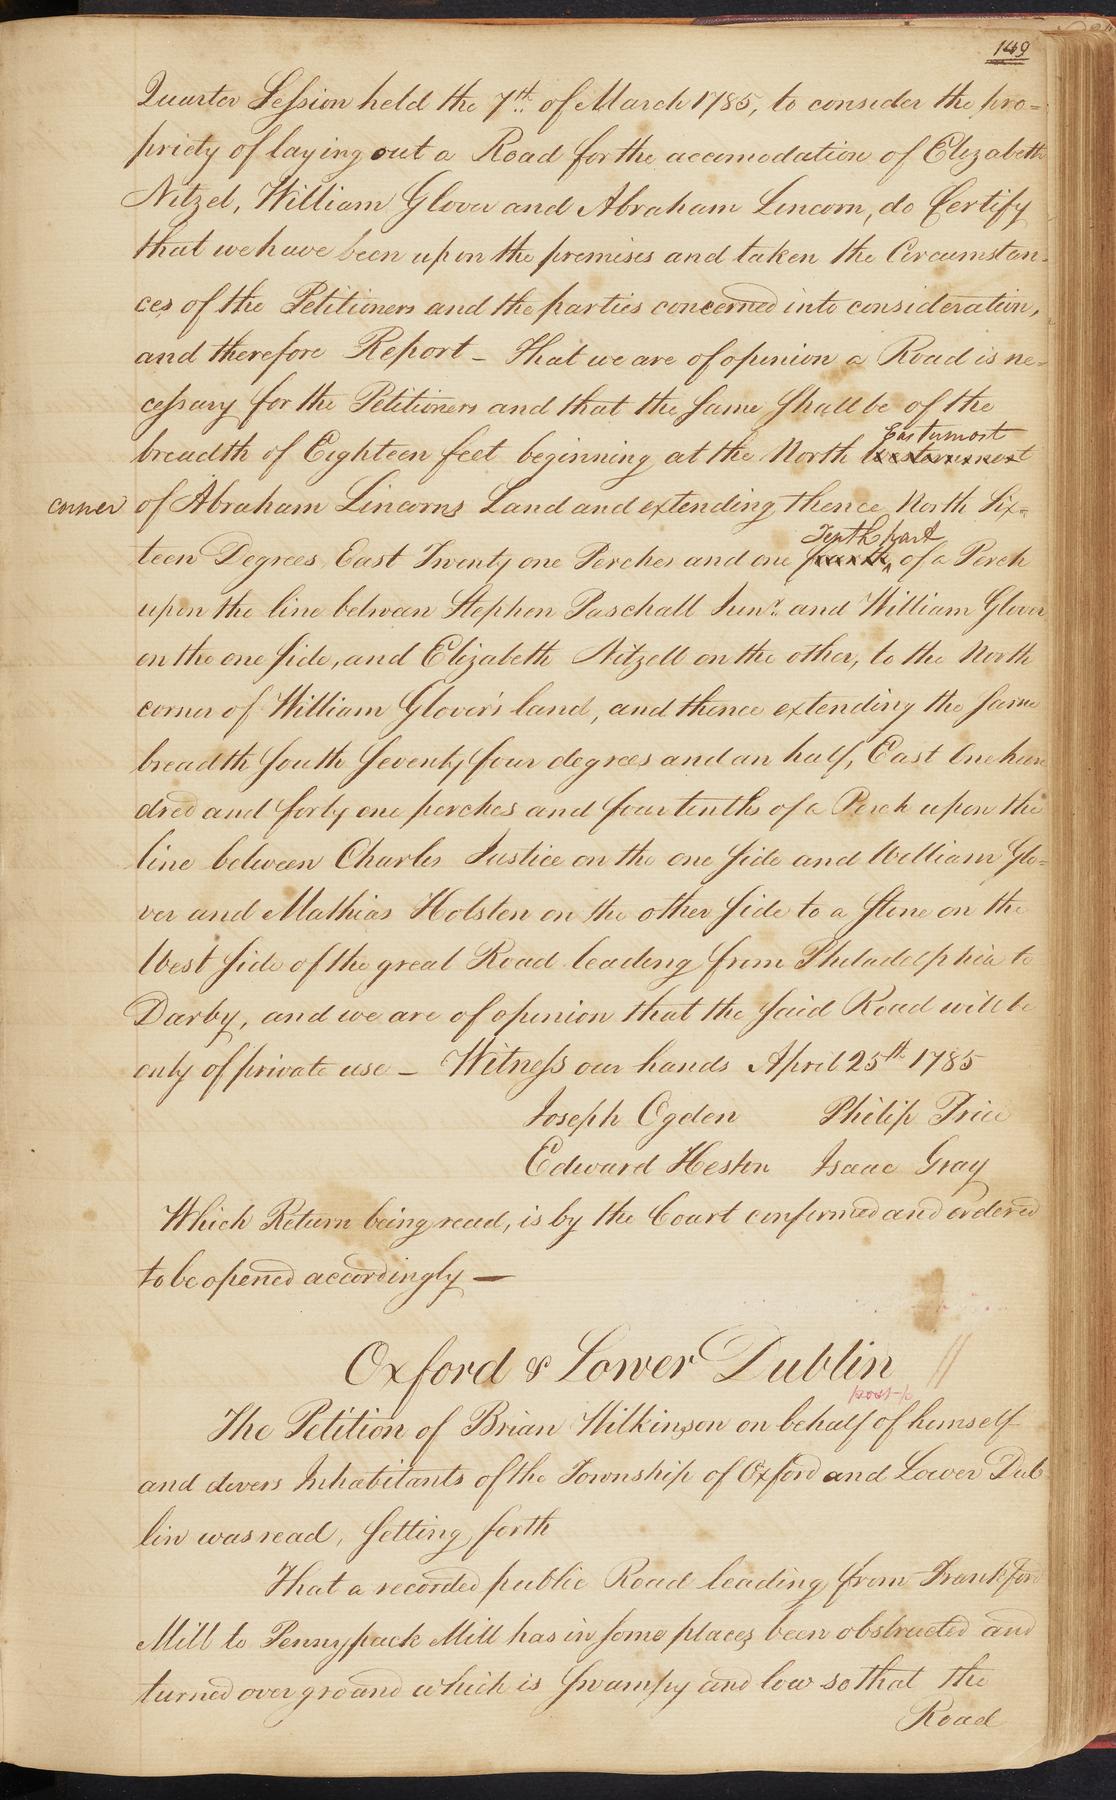 149
Quarter Session held the 7th of March 1785, to consider the pro=
priety of laying out a Road for the accomodation of Elizabeth
Nitzel, William Glover and Abraham Lincorn, do Certify
that we have been upon the premises and taken the Circumstan=
ces of the Petitioners and the parties concerned into consideration,
and therefore Report – That we are of opinion a Road is ne=
cessary for the Petitioners and that the same shall be of the
Easturmost
breadth of Eighteen feet beginning at the North
corner of Abraham Lincorns Land and extending thence North Six=
Tenth part
teen Degrees East Twenty one Perches and one of a Perch
upon the line between Stephen Paschall Junr. and William Glover
on the one side, and Elizabeth Nitzell on the other, to the North
corner of William Glover's land, and thence extending the same
breadth South Seventy four degrees and an half, East One hun
dred and forty one perches and four tenths of a Perch upon the
line between Charles Justice on the one side and William Glo=
ver and Mathias Holsten on the other side to a Stone on the
West side of the great Road leading from Philadelphia to
Darby, and we are of opinion that the said Road will be
only of private use – Witness our hands April 25th 1785
Joseph Ogden Philip Price
Edward Heston Isaac Gray
Which Return being read, is by the Court confirmed and ordered
to be opened accordingly —
Oxford & Lower Dublin //
The Petition of Brian Wilkinson on behalf of himself
and divers Inhabitants of the Township of Oxford and Lower Dub
lin was read, setting forth
That a recorded public Road leading from Frankford
Mill to Pennypack Mill has in some places been obstructed and
turned over ground which is swampy and low so that the
Road